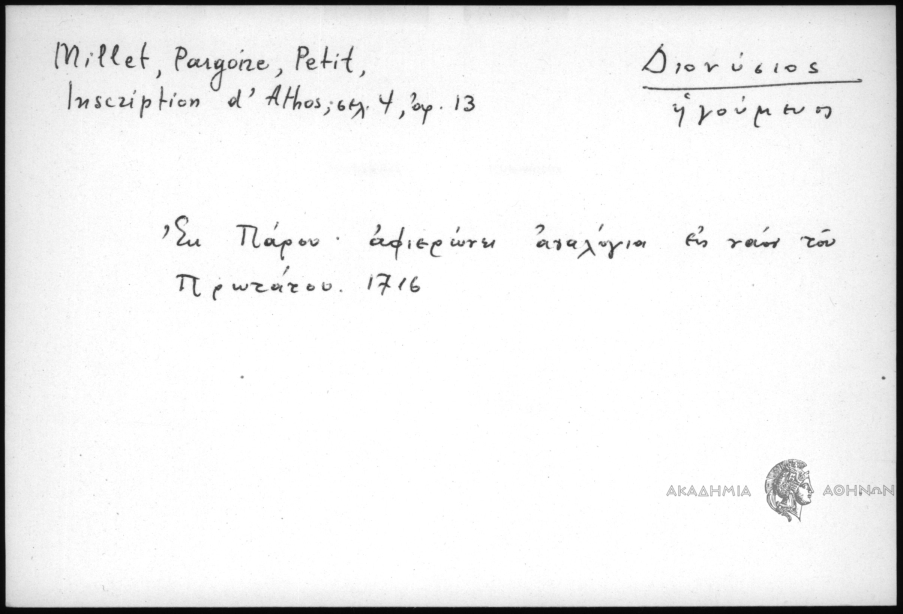 Millet, Pargoire, Petit,
Inscription d'Athos, σελ. 4, ἀρ. 13
Διονύσιος
ἡγούμενος
Ἐκ Πάρου· ἀφιερώνει ἀναλόγια εἰς ναόν τοῦ
Πρωτάτου. 1716
ΑΚΑΔΗΜΙΑ ΑΘΗΝΩΝ